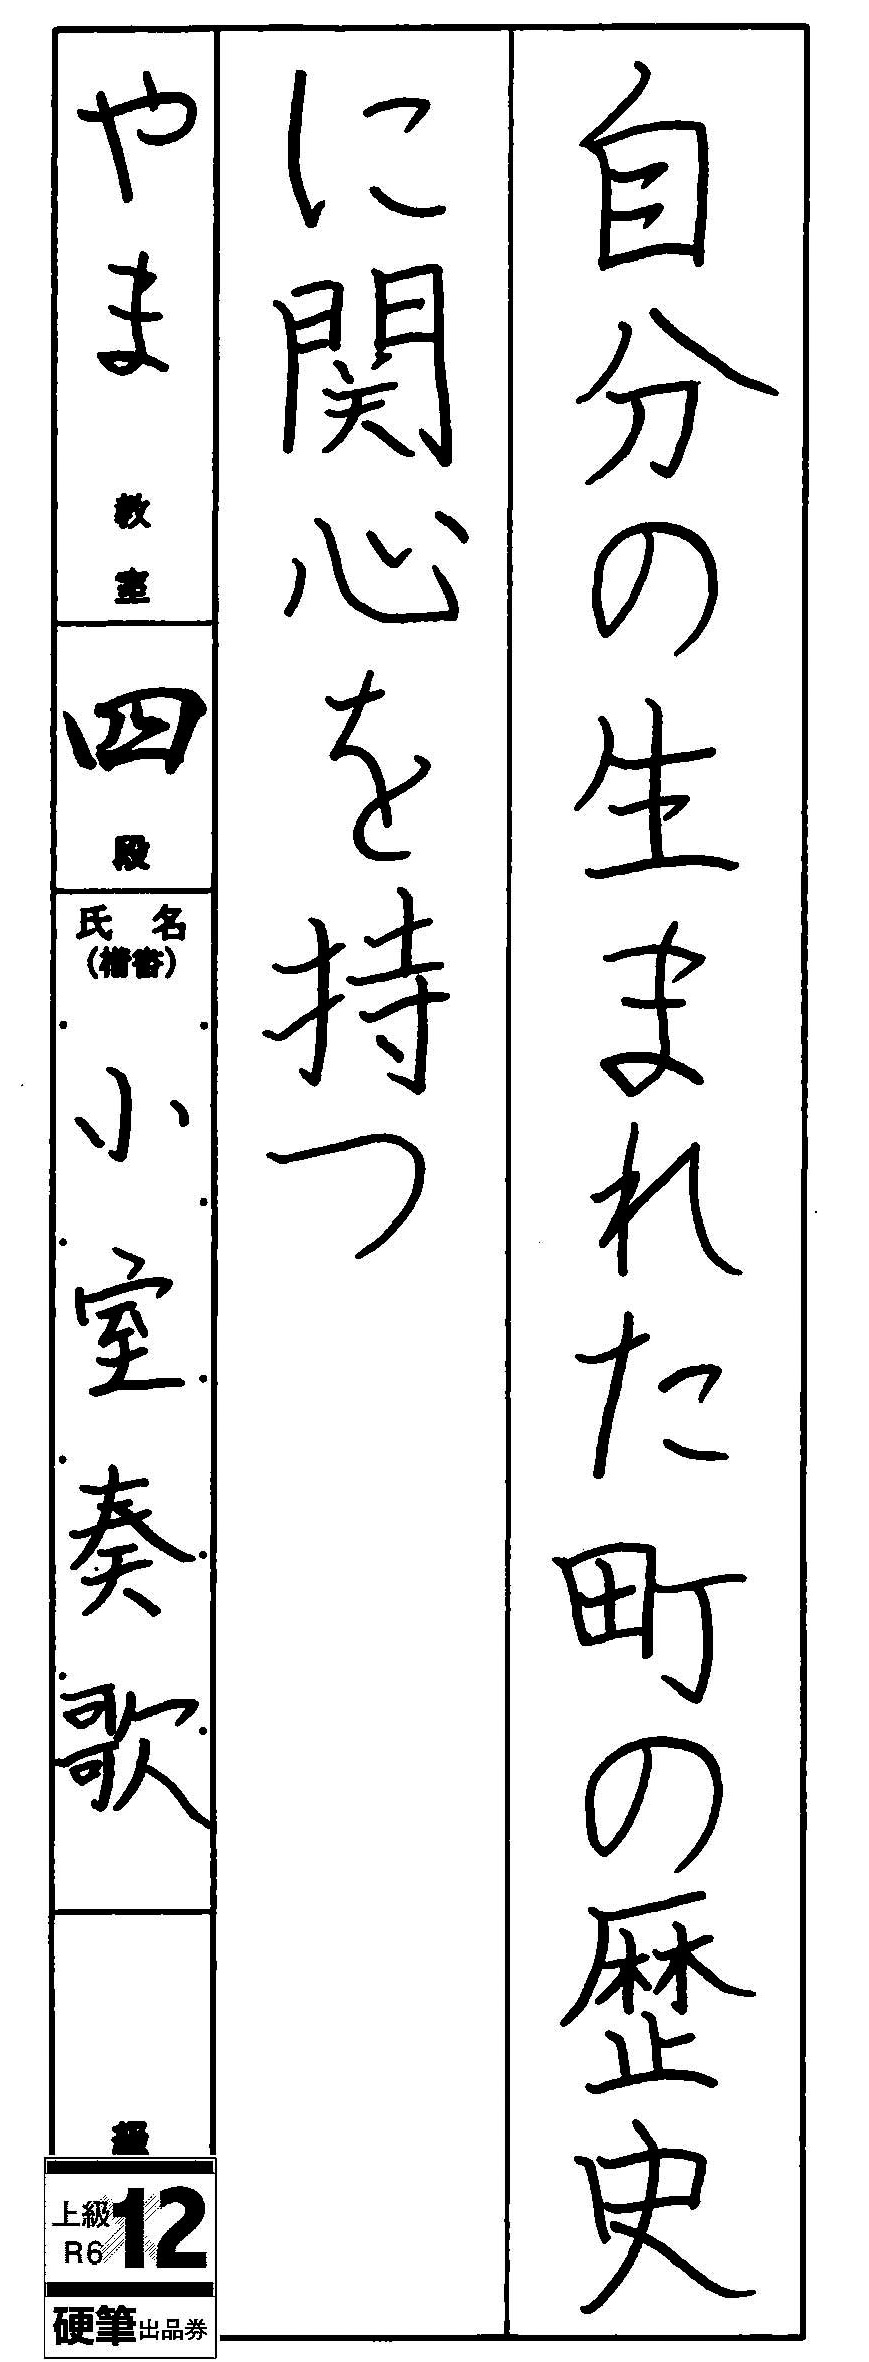 自分の生まれた町の歴史
に関心を持つ
やま教室
四段
氏名
(楷書)
小室奏歌
級
上級
R6
12
硬筆出品券